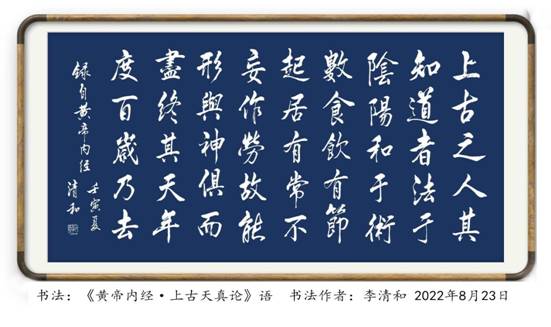 上古之人其
知道者法于
陰陽和于術
數食飲有節
起居有常不
妄作勞故能
形與神俱而
盡終其天年
度百歲乃去
録自黄帝内经
壬寅夏
清和
书法：《黄帝内经·上古天真论》语 书法作者：李清和 2022年8月23日